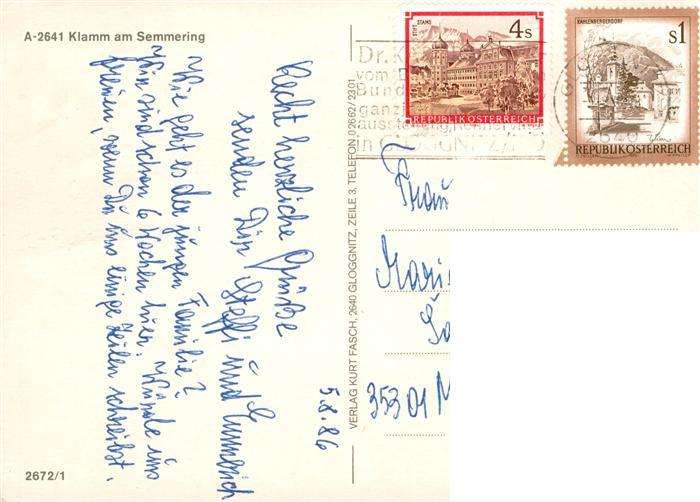 A-2641 Klamm am Semmering
5.8.86
Recht herzliche Grüße
senden Dir Steffi und Emmerich
Wie geht es der jungen Familie?
Wir sind schon 6 Wochen hier. Würde uns
freuen, wenn Du uns einige Zeilen schreibst.
2672/1
VERLAG KURT FASCH, 2640 GLOGGNITZ, ZEILE 3, TELEFON 02662/2301
STIFT STAMS
4s
REPUBLIK ÖSTERREICH
KAHLENBERGERDORF
s1
REPUBLIK ÖSTERREICH
Dr. K
vom
Bund
ganz
ausstellung
in GLOGGNITZ/NÖ
2640
Frau
Mari
35301 M